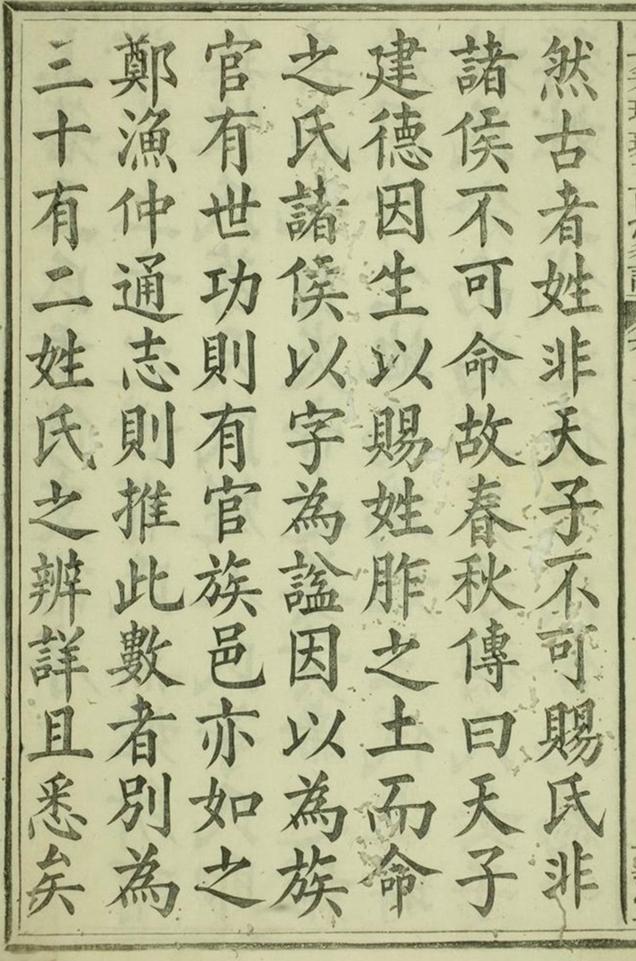 然古者姓非天子不可賜氏非
諸侯不可命故春秋傳曰天子
建德因生以賜姓胙之土而命
之氏諸侯以字為諡因以為族
官有世功則有官族邑亦如之
鄭漁仲通志則推此數者別為
三十有二姓氏之辨詳且悉矣